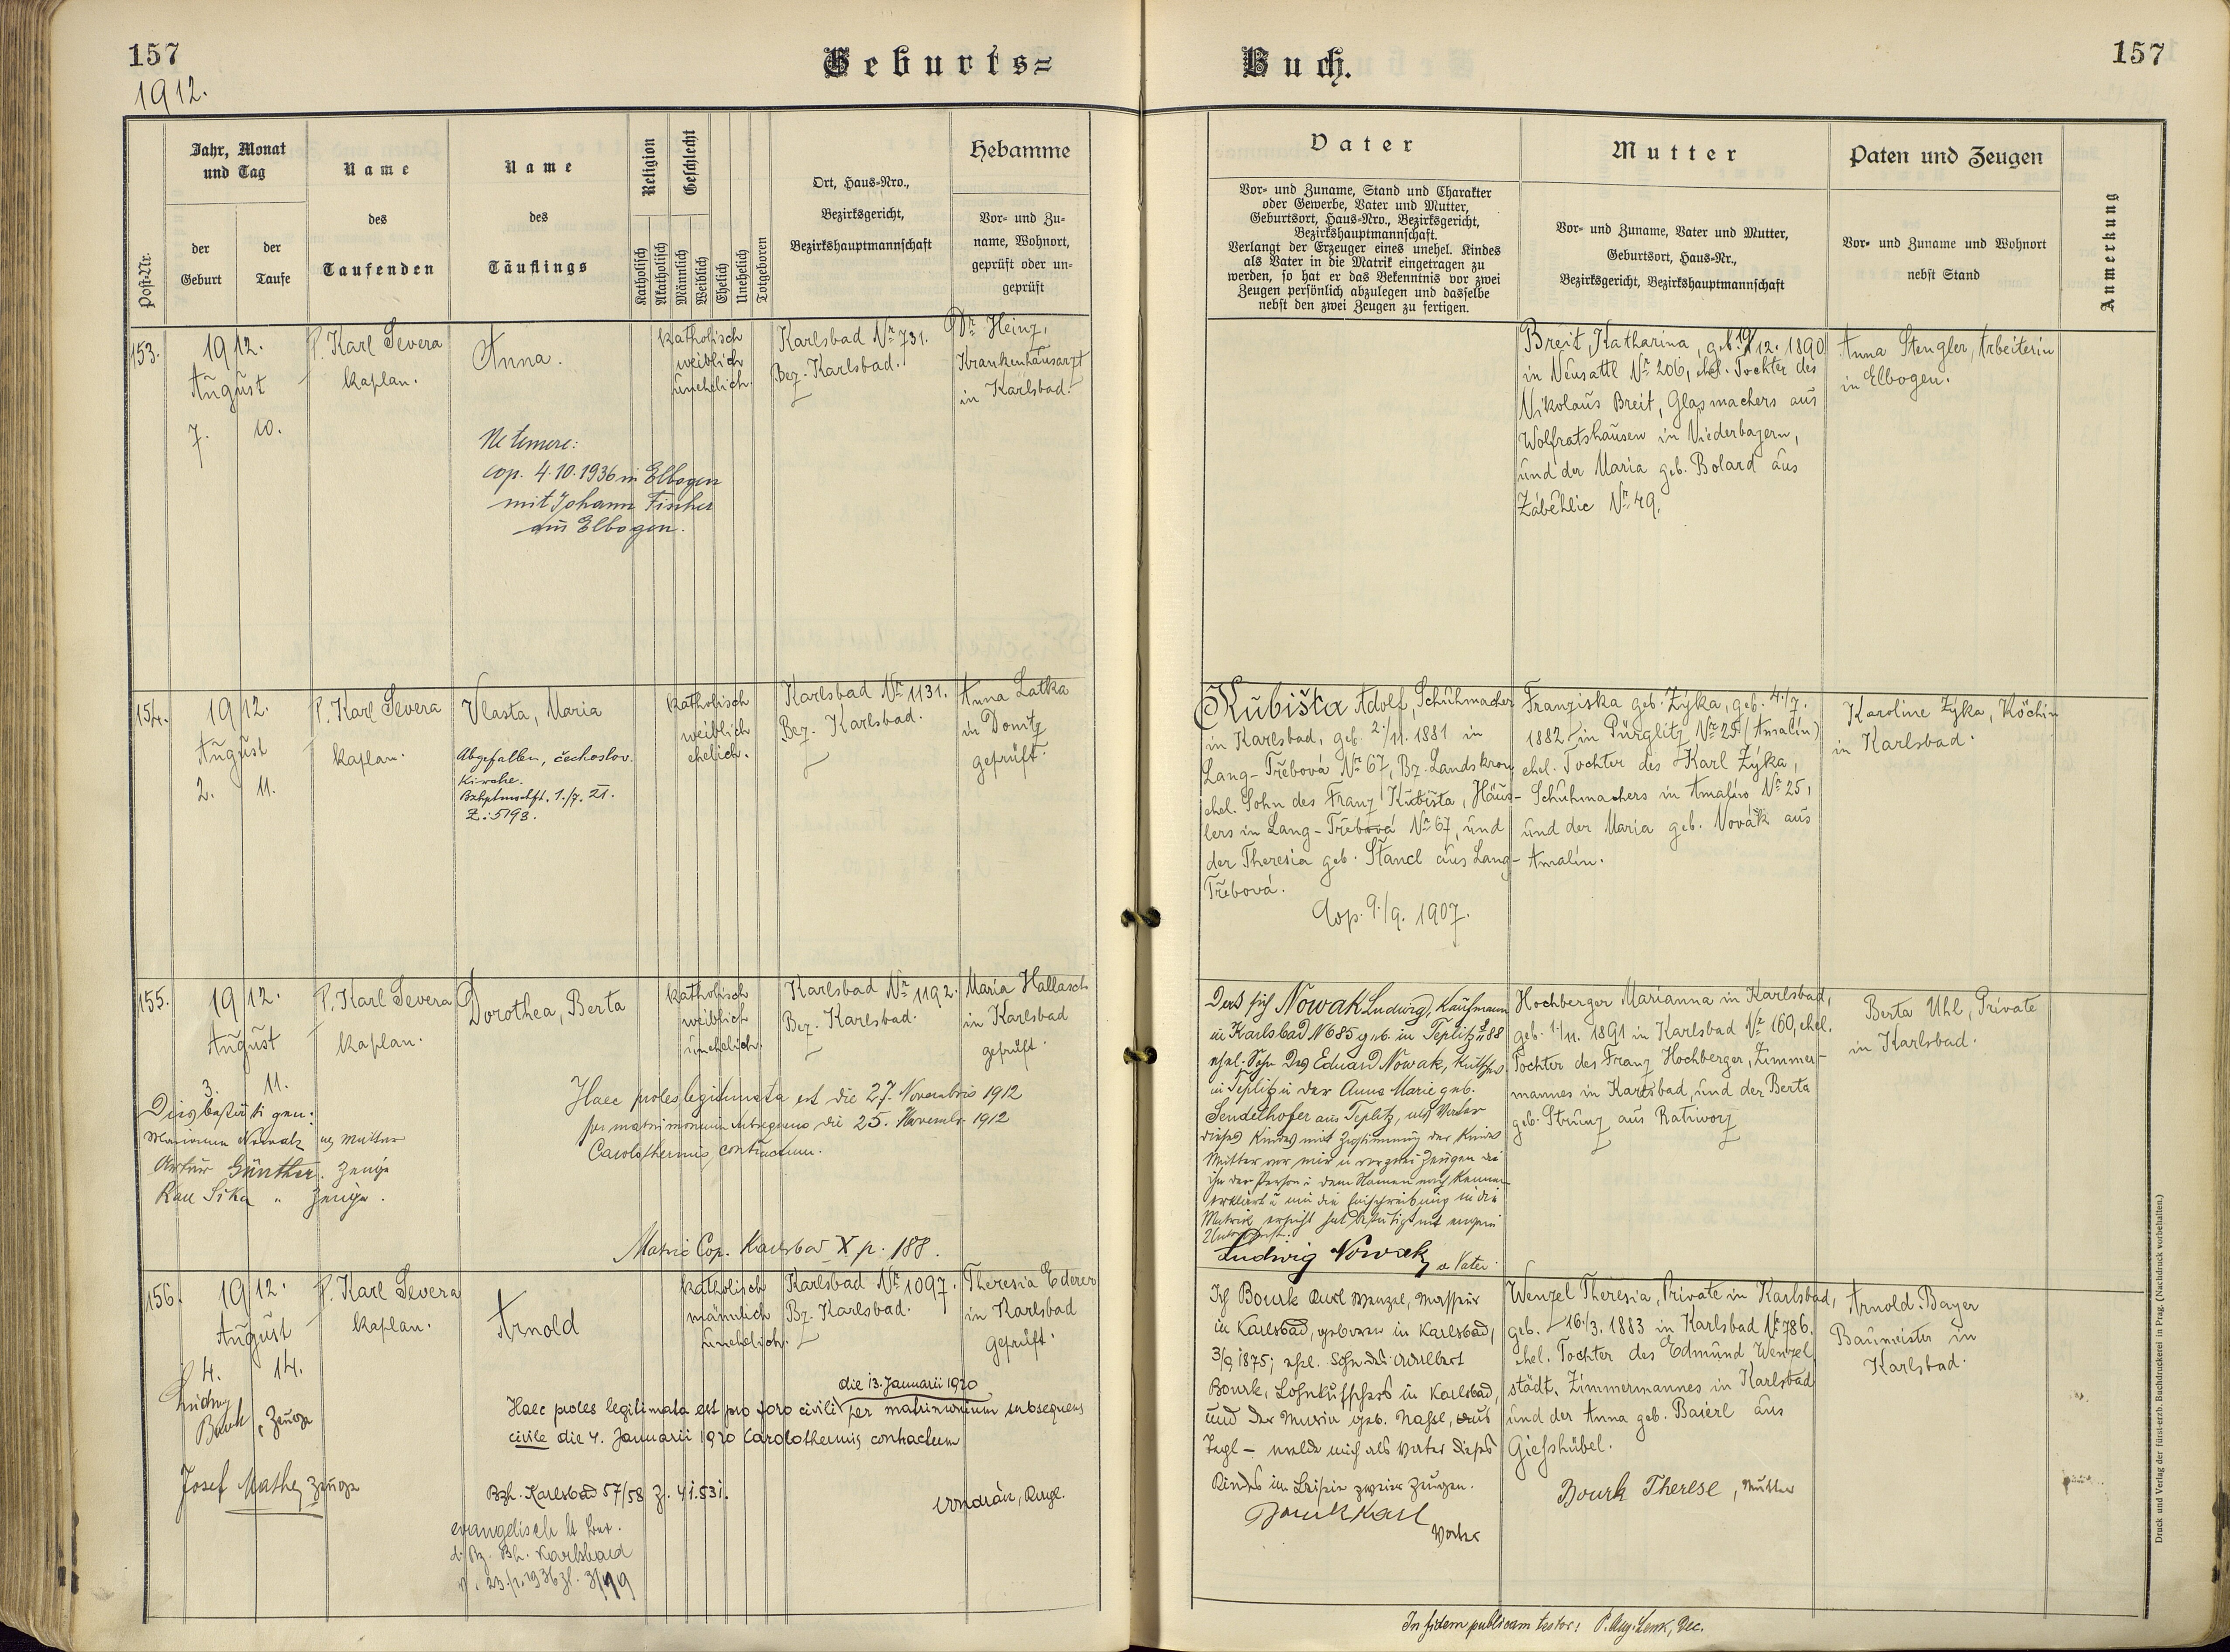 157
Geburts=
Buch.
157
1912.
Post-Nr.
Jahr, Monat
und Tag
der
Geburt
der
Taufe
Name
des
Taufenden
Name
des
Täuflings
Religion
Katholisch
Akatholisch
Geschlecht
Männlich
Weiblich
Ehelich
Unehelich
Totgeboren
Ort, Haus-Nro.,
Bezirksgericht,
Bezirkshauptmannschaft
Hebamme
Vor- und Zu-
name, Wohnort,
geprüft oder un-
geprüft
Vater
Vor- und Zuname, Stand und Charakter
oder Gewerbe, Vater und Mutter,
Geburtsort, Haus-Nro., Bezirksgericht,
Bezirkshauptmannschaft.
Verlangt der Erzeuger eines unehel. Kindes
als Vater in die Matrik eingetragen zu
werden, so hat er das Bekenntnis vor zwei
Zeugen persönlich abzulegen und dasselbe
nebst den zwei Zeugen zu fertigen.
Mutter
Vor- und Zuname, Vater und Mutter,
Geburtsort, Haus-Nr.,
Bezirksgericht, Bezirkshauptmannschaft
Paten und Zeugen
Vor- und Zuname und Wohnort
nebst Stand
Anmerkung
153.
1912.
August
7. 10.
P. Karl Severa
Kaplan.
Anna.
Ne temere:
cop. 4.10.1936 in Elbogen
mit Johann Fischer
aus Elbogen.
katholisch
weiblich
unehelich.
Karlsbad Nr. 731.
Bez. Karlsbad.
Dr. Heinz,
Krankenhausarzt
in Karlsbad.
Breit Katharina, geb. 19/12. 1890
in Neusattl Nr. 206, ehel. Tochter des
Nikolaus Breit, Glasmachers aus
Wolfratshausen in Niederbayern,
und der Maria geb. Bolard aus
Záběhlic Nr. 49.
Anna Stengler, Arbeiterin
in Elbogen.
154.
1912.
August
2. 11.
P. Karl Severa
Kaplan.
Vlasta, Maria
Abgefallen, čechoslov.
Kirche.
Bzhptmschft. 1./7. 21.
Z: 5193.
katholisch
weiblich
ehelich.
Karlsbad Nr. 1131.
Bez. Karlsbad.
Anna Latka
in Donitz
geprüft.
Kubišta Adolf, Schuhmacher
in Karlsbad, geb. 2./11. 1881 in
Lang-Třebová Nr. 67, Bz. Landskron
ehel. Sohn des Franz Kubišta, Häus-
lers in Lang-Třebová Nr. 67, und
der Theresia geb. Štancl aus Lang-
Třebová.
Cop. 9./9. 1907.
Franziska geb. Zýka, geb. 4./7.
1882 in Pürglitz Nr. 25 (Amalín)
ehel. Tochter des Karl Zýka,
Schuhmachers in Amalín Nr. 25,
und der Maria geb. Novák aus
Amalín.
Karoline Zýka, Köchin
in Karlsbad.
155.
1912.
August
3. 11.
Dies bestätigen:
Marianna Nowak als Mutter
Artur Günther. Zeuge
Karl Sika " Zeuge.
P. Karl Severa
Kaplan.
Dorothea, Berta
katholisch
weiblich
unehelich.
Karlsbad Nr. 1192.
Bez. Karlsbad.
Maria Hallasch
in Karlsbad
geprüft.
Haec proles legitimata est die 27. Novembris 1912
per matrimonium subsequens die 25. Novembr. 1912
Carolothermis contractum.
Matric Cop. Karlsbad X p. 188.
Daß sich Nowak Ludwig, Kaufmann
in Karlsbad N 685 geb. in Teplitz
ehel. Sohn des Eduard Nowak, Kutscher
in Teplitz u der Anna Marie geb.
Sendelhofer aus Teplitz, als Vater
dieses Kindes mit Zustimmung der Kindes
Mutter vor mir u vor zwei Zeugen die
ihn der Person u dem Namen nach kennen
erklärt u um die Einschreibung in die
Matrik ersucht hat bestätigt mit eigener
Unterschrift.
Ludwig Nowak, a Vater.
Hochberger Marianna in Karlsbad,
geb. 1./11. 1891 in Karlsbad Nr. 160, ehel.
Tochter des Franz Hochberger, Zimmer-
mannes in Karlsbad, und der Berta
geb. Strunz aus Ratiworz
Berta Uhl, Private
in Karlsbad.
156.
1912.
August
4. 14.
Ludwig
Bourk, Zeuge
Josef Mathe, Zeuge
P. Karl Severa
Kaplan.
Arnold
katholisch
männlich
unehelich.
Karlsbad Nr. 1097.
Bz. Karlsbad.
Theresia Ederer
in Karlsbad
geprüft.
die 13. Januarii 1920
Haec proles legitimata est pro foro civili per matrimonium subsequens
civile die 4. Januarii 1920 Carolothermis contractum
Bzh. Karlsbad 57/58 Z. 41.531.
evangelisch lt
d. Bz. Bh. Karlsbad
Ich Bourk Karl Wenzel, Masseur
in Karlsbad, geboren in Karlsbad,
3/9 1875; ehel. Sohn des Adalbert
Bourk, Lohnkutschers in Karlsbad,
und der Maria geb. aus
melde mich als Vater dieses
Kindes im Beisein zweier Zeugen.
Bourk Karl
Vater
Wenzel Theresia, Private in Karlsbad,
geb. 16./3. 1883 in Karlsbad Nr. 786.
ehel. Tochter des Edmund Wenzel
städt. Zimmermannes in Karlsbad
und der Anna geb. Baierl aus
Gießhübel.
Bourk Therese, Mutter
Arnold Bayer
Baumeister in
Karlsbad.
In fidem publicam testor: P. Aug. Lenk, Dec.
Druck und Verlag der fürst-erzb. Buchdruckerei in Prag. (Nachdruck vorbehalten.)